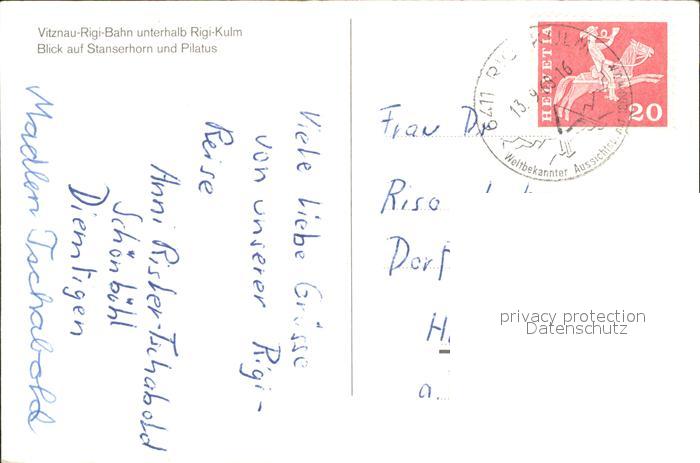 Vitznau-Rigi-Bahn unterhalb Rigi-Kulm
Blick auf Stanserhorn und Pilatus
Viele liebe Grüsse
von unserer Rigi-
Reise
Anni Risler-Tschabold
Schönbühl
Diemtigen
Madlen Tschabold
HELVETIA
20
6411 RIGI KULM
13.9.68-16
Weltbekannter Aussichts
Frau D
Riso
Dorf
H
a.
privacy protection
Datenschutz